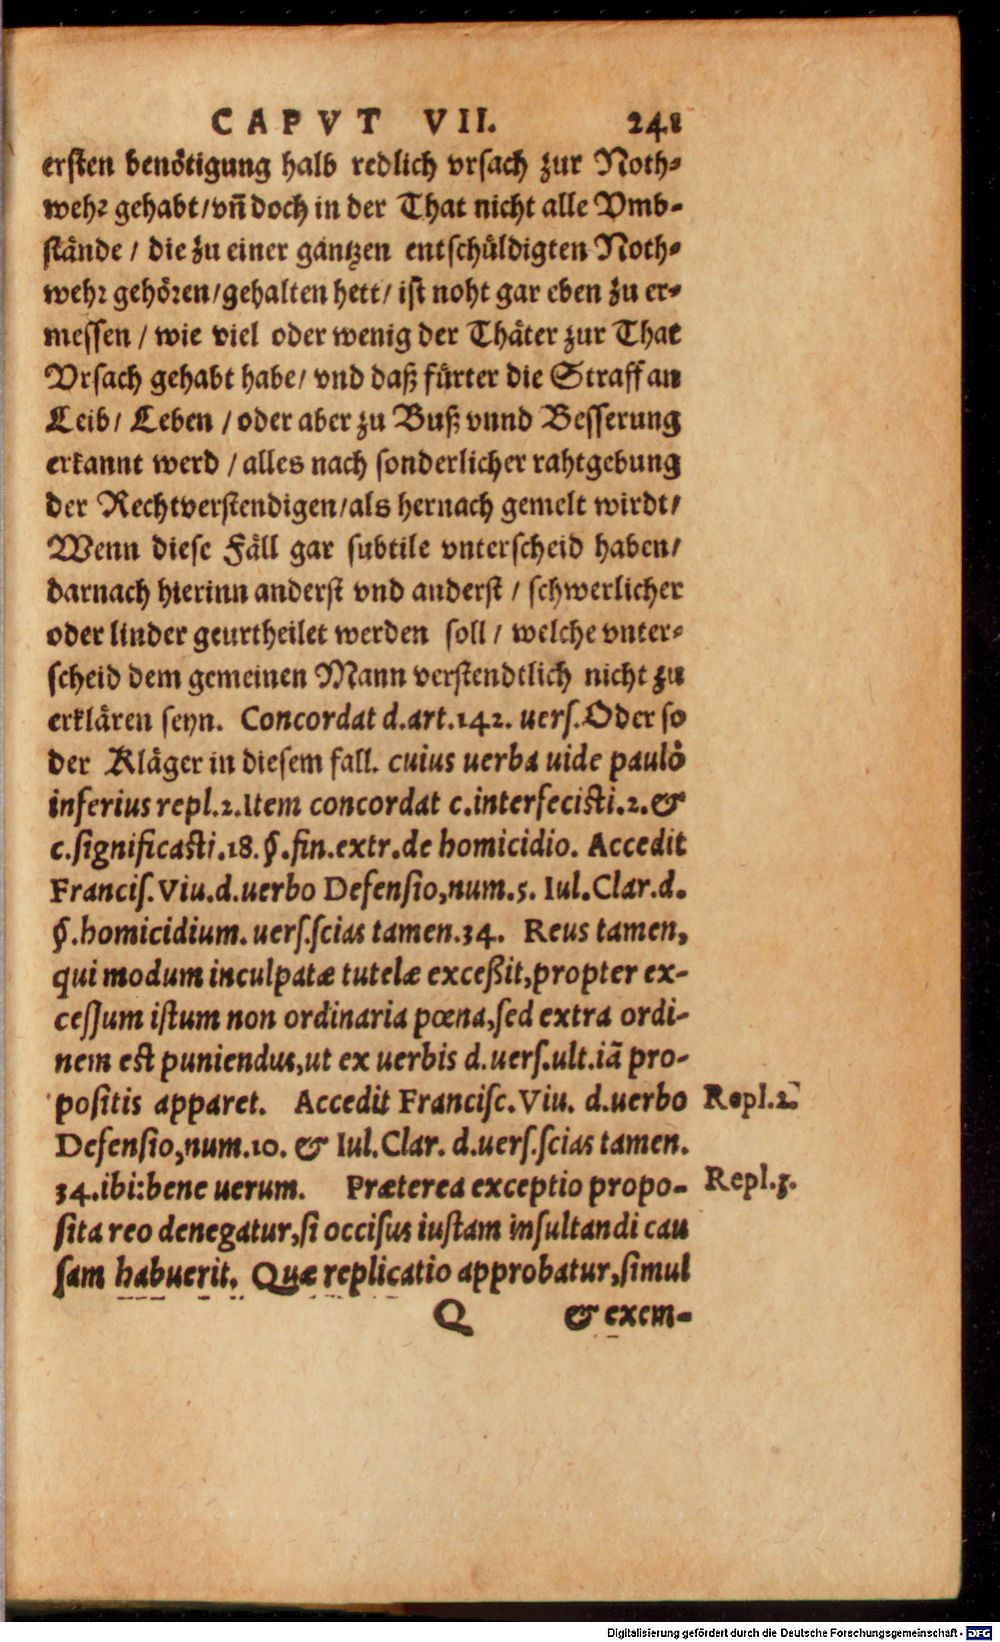 CAPVT VII. 248
ersten benötigung halb redlich vrsach zur Noth-
wehr gehabt/vñ doch in der That nicht alle Vmb-
stände / die zu einer gäntzen entschüldigten Noth-
wehr gehören/gehalten hett/ ist noht gar eben zu er-
messen / wie viel oder wenig der Thäter zur That
Vrsach gehabt habe/ vnd daß fürter die Straff an
Leib/ Leben / oder aber zu Buß vnnd Besserung
erkannt werd / alles nach sonderlicher rahtgebung
der Rechtverstendigen/als hernach gemelt wirdt/
Wenn diese Fäll gar subtile vnterscheid haben/
darnach hierinn anderst vnd anderst / schwerlicher
oder linder geurtheilet werden soll / welche vnter-
scheid dem gemeinen Mann verstendtlich nicht zu
erklären seyn. Concordat d.art.142. uers.Oder so
der Kläger in diesem fall. cuius uerba uide paulò
inferius repl.2.Item concordat c.interfecisti.2.&
c.significasti.18.§.fin.extr.de homicidio. Accedit
Francis.Viu.d.uerbo Defensio,num.5. Iul.Clar.d.
§.homicidium.uers.scias tamen.34. Reus tamen,
qui modum inculpatæ tutelæ exceßit,propter ex-
cessum istum non ordinaria pœna,sed extra ordi-
nem est puniendus,ut ex uerbis d.uers.ult.iã pro-
positis apparet. Accedit Francisc.Viu. d.uerbo
Repl.2.
Defensio,num.10. & Iul.Clar. d.uers.scias tamen.
34.ibi:bene uerum. Præterea exceptio propo-
Repl.3.
sita reo denegatur,si occisus iustam insultandi cau
sam habuerit. Quæ replicatio approbatur,simul
Q & exem-
Digitalisierung gefördert durch die Deutsche Forschungsgemeinschaft - DFG